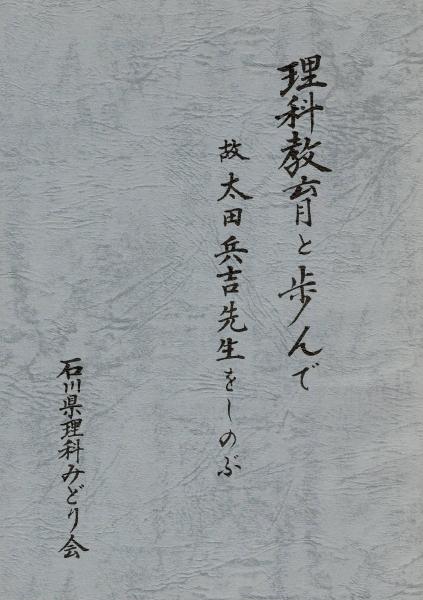 理科教育と歩んで
故太田兵吉先生をしのぶ
石川県理科みどり会